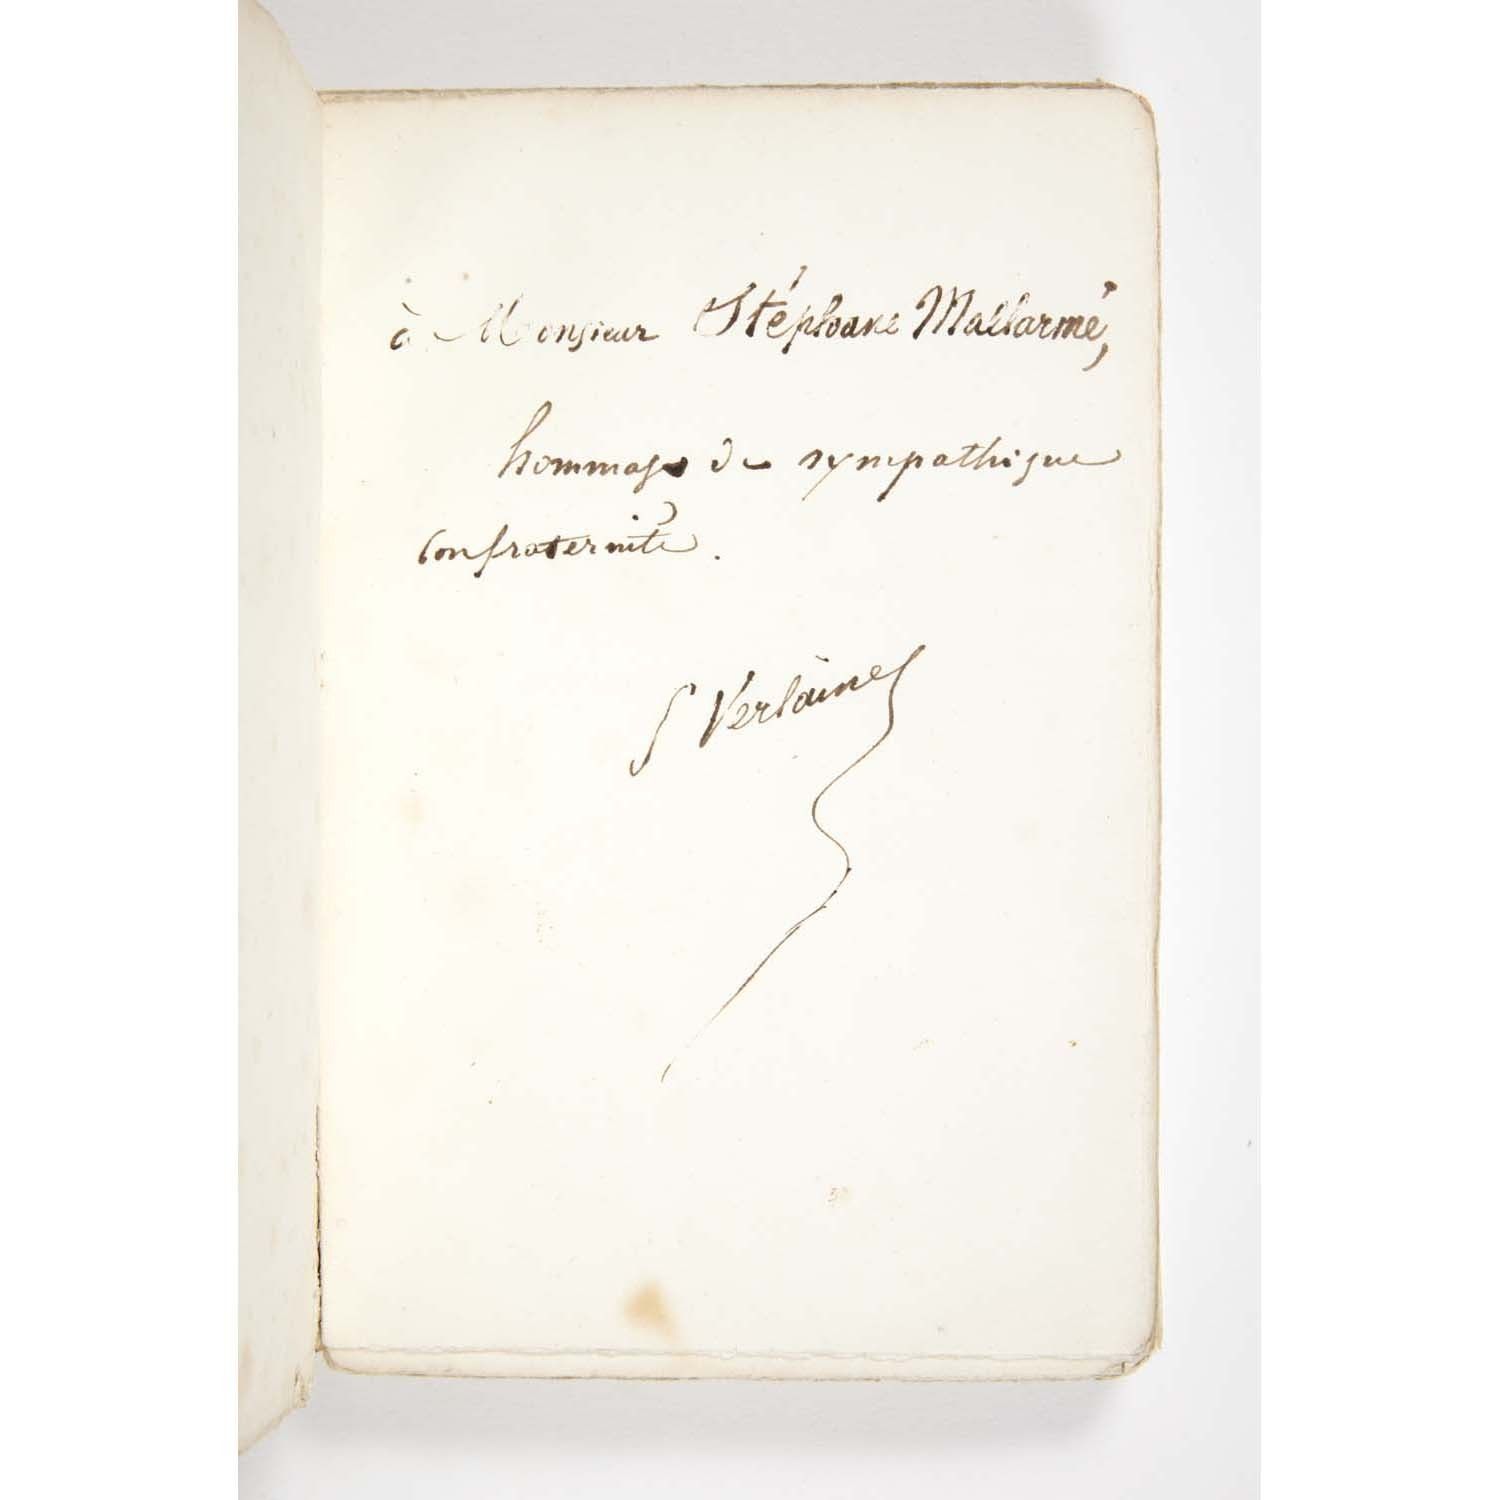 à Monsieur Stéphane Mallarmé,
hommage de sympathique
confraternité.
P Verlaine